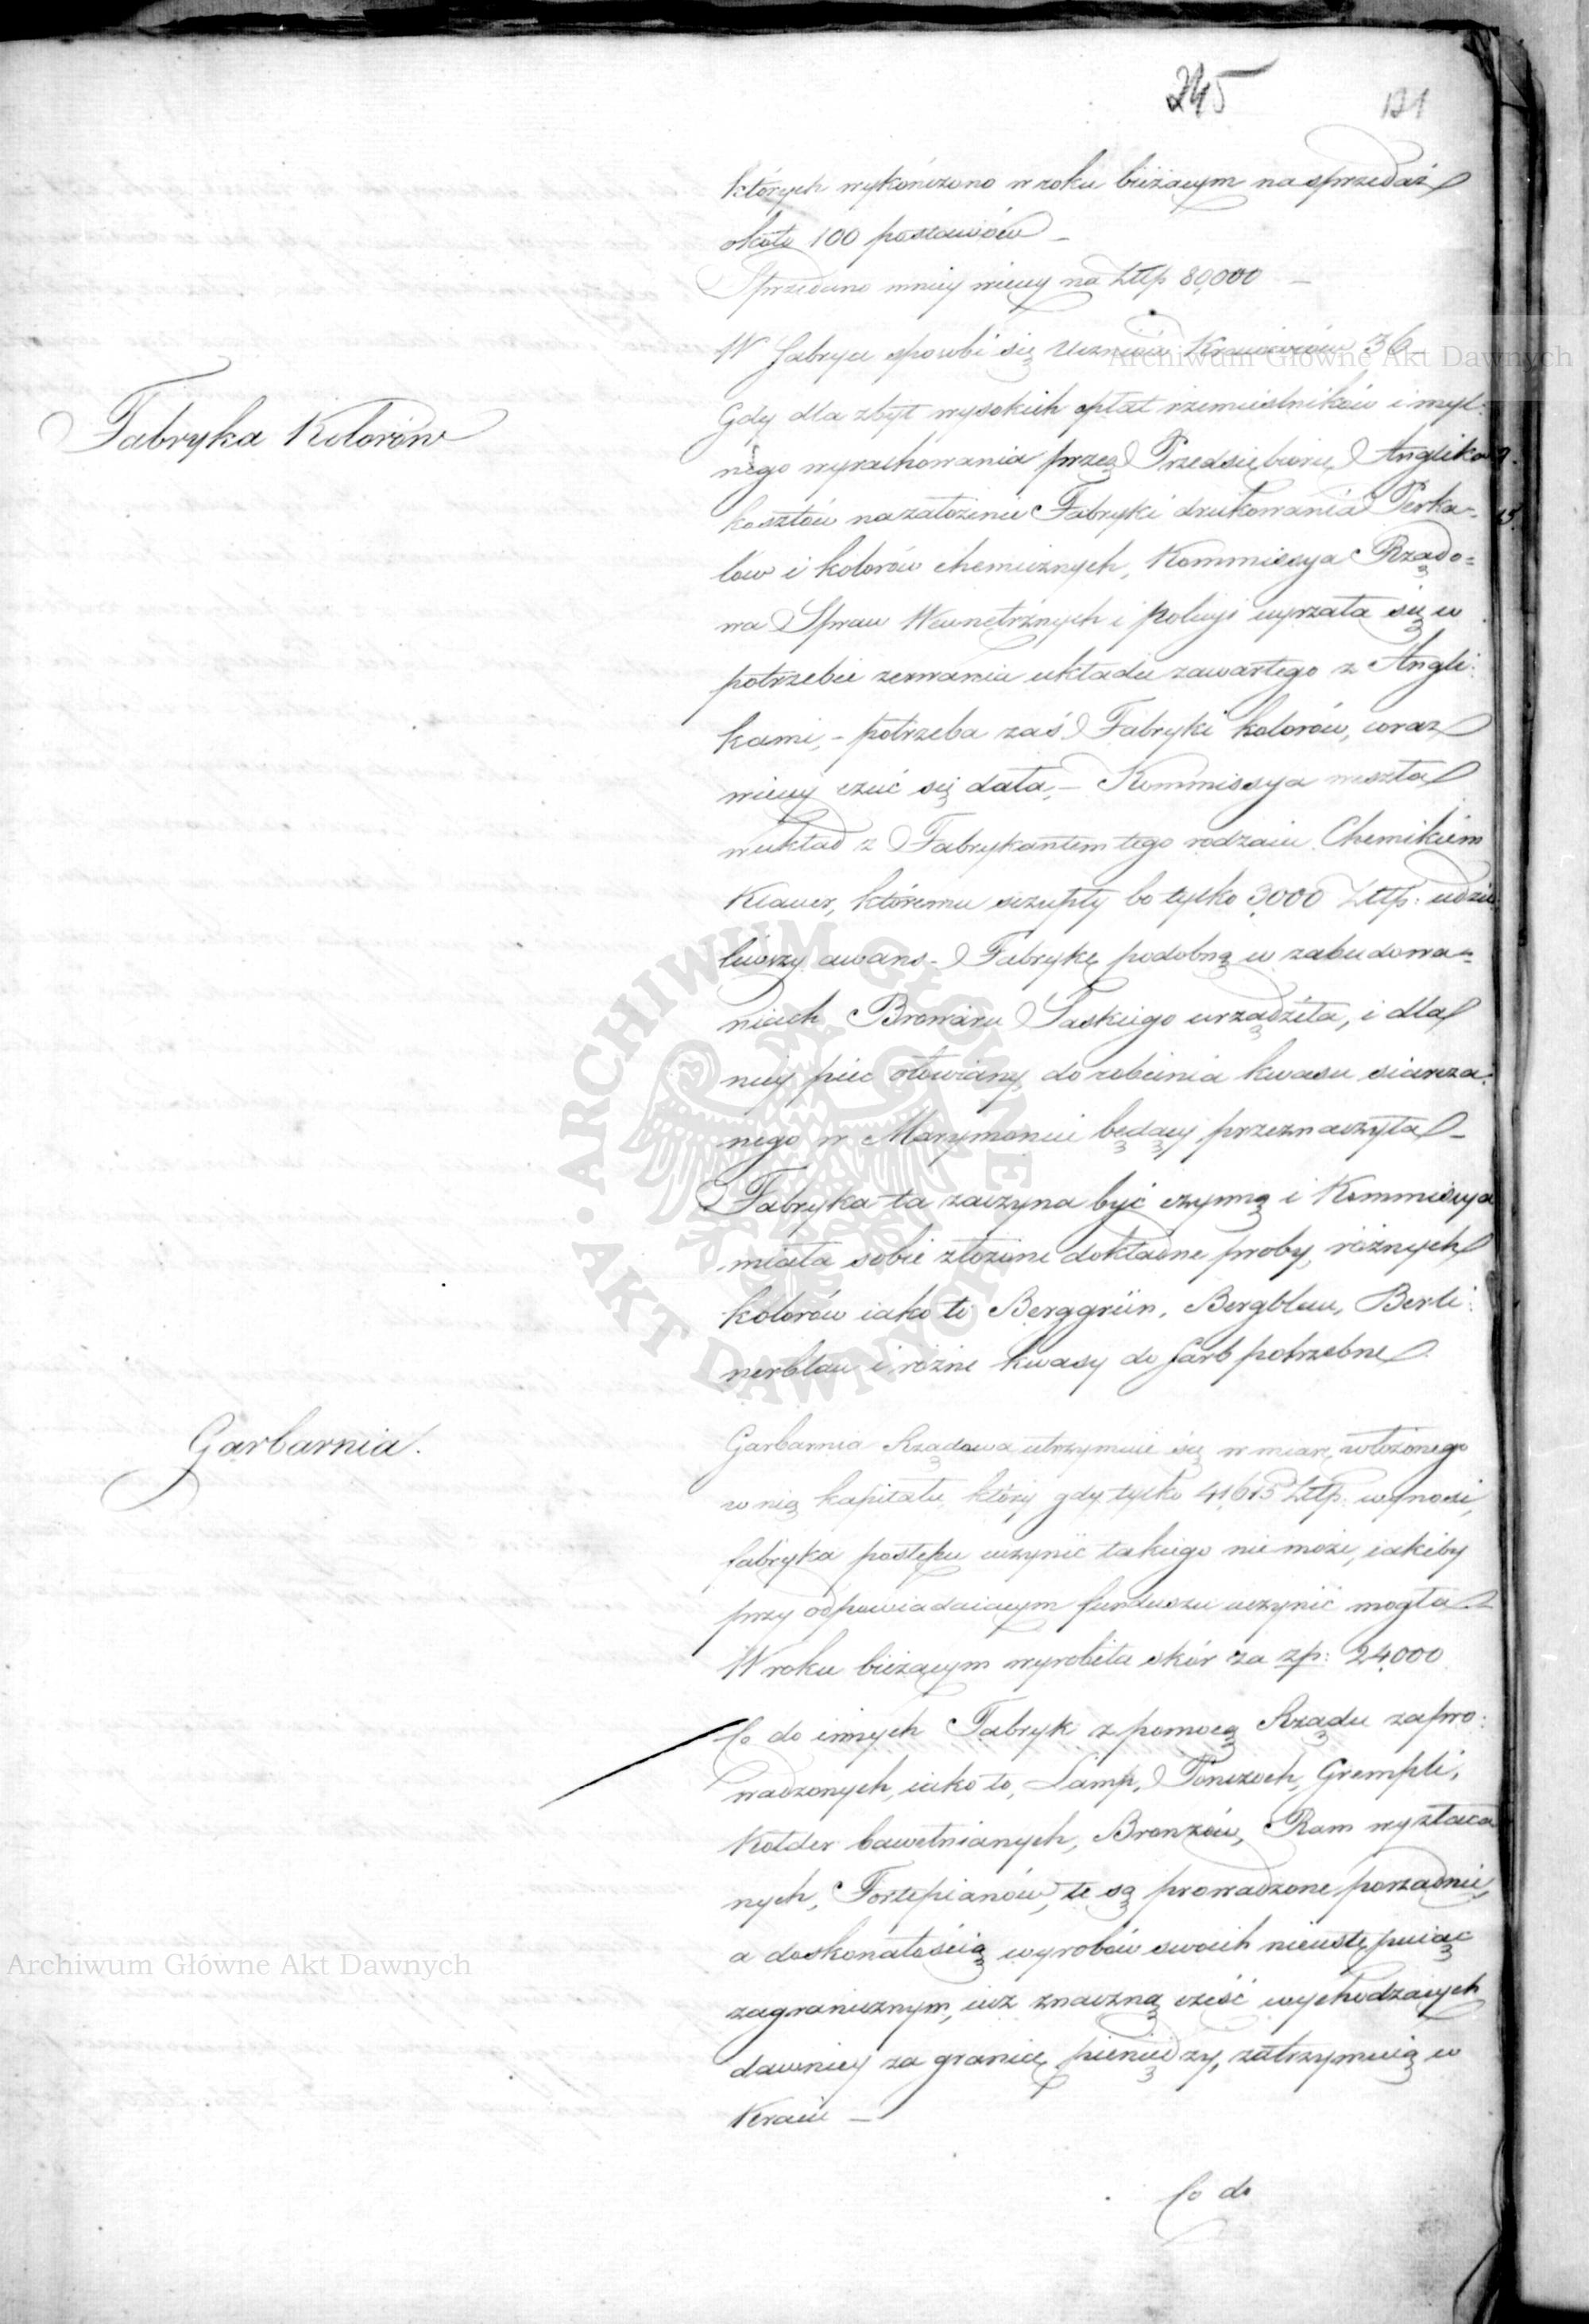 245
121
których wykończono w roku bieżącym na sprzedaż
około 100 postawów –
Sprzedano mniey więcey na Złtp 80,000 –
W fabryce sposobi się Uczniów Krawieców 36
Archiwum Główne Akt Dawnych
Fabryka Kolorów
Gdy dla zbyt wysokich opłat rzemieślników i myl:
nego wyrachowania przez Przedsiębiorcę Anglików
kosztów na założenie Fabryki drukowania Perka-
lów i kolorów chemicznych, Kommissya Rządo-
wa Spraw Wewnętrznych i Policyi uyrzała się w
potrzebie zerwania układu zawartego z Angli:
kami, – potrzeba zaś Fabryki kolorów, coraz
więcey czuć się dała, – Kommissya weszła
w układ z Fabrykantem tego rodzaiu Chemikiem
Klauer, któremu szczupły bo tylko 3000 Złtp: udzie
liwszy awans – Fabrykę podobną w zabudowa-
niach Browaru Saskiego urządziła, i dla
niey piec ołowiany, do robienia kwasu siarcza:
nego w Marymoncie będący przeznaczyła –
Fabryka ta zaczyna być czynną i Kommissya
miała sobie złożone dokładne proby, różnych
kolorów iako to Berggrün, Bergblau, Berli:
nerblau i różne kwasy do farb potrzebne
ARCHIWUM GŁÓWNE AKT DAWNYCH
Garbarnia.
Garbarnia Rządowa utrzymuie się w miarę włożonego
w nią kapitału, który gdy tylko 41,615 Złtp: wynosi,
fabryka postępu uczynić takiego nie może, iakiby
przy odpowiadaiącym funduszu uczynić mogła
W roku bieżącym wyrobiła skór za zp: 24,000
Co do innych Fabryk z pomocą Rządu zapro:
wadzonych, iako to, Lamp, Pończoch, Grempli,
Kołder bawełnianych, Bronzów, Ram wyzłaca
nych, Fortepianów, te są prowadzone porządnie,
a doskonałością wyrobów swoich nieustępuiąc
zagranicznym, iuż znaczną część wychodzących
dawniey za granicę pieniędzy, zatrzymuią w
Kraiu –
Archiwum Główne Akt Dawnych
Co do